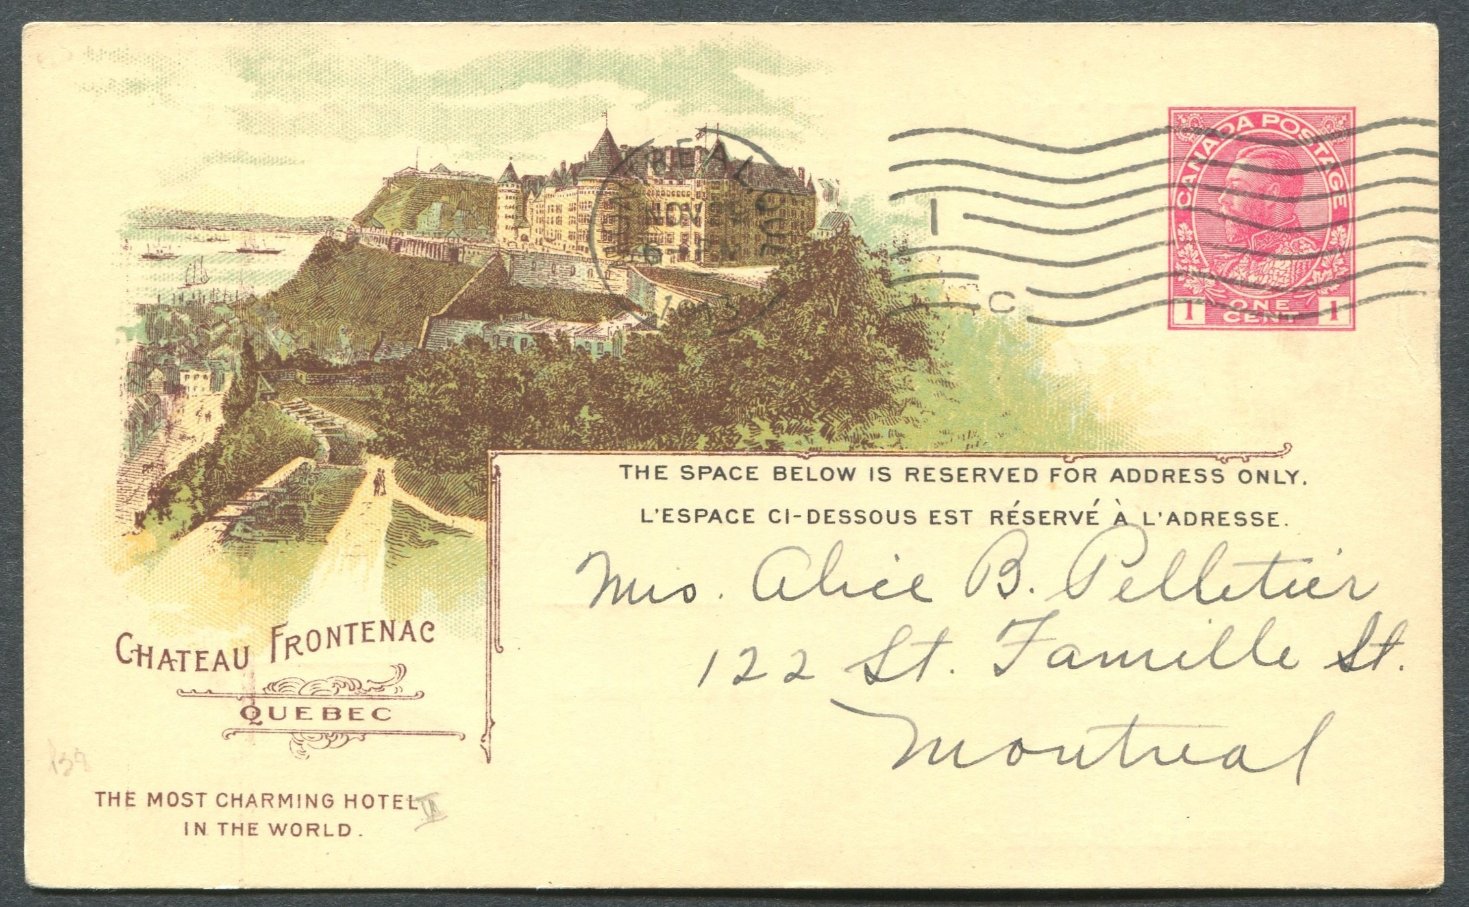 CANADA POSTAGE
1 ONE CENT 1
MONTREAL, QUE.
NOV 2
1913
1
C
THE SPACE BELOW IS RESERVED FOR ADDRESS ONLY.
L'ESPACE CI-DESSOUS EST RÉSERVÉ À L'ADRESSE.
Mrs. Alice B. Pelletier
122 St. Famille St.
Montreal
CHATEAU FRONTENAC
QUEBEC
THE MOST CHARMING HOTEL
IN THE WORLD.